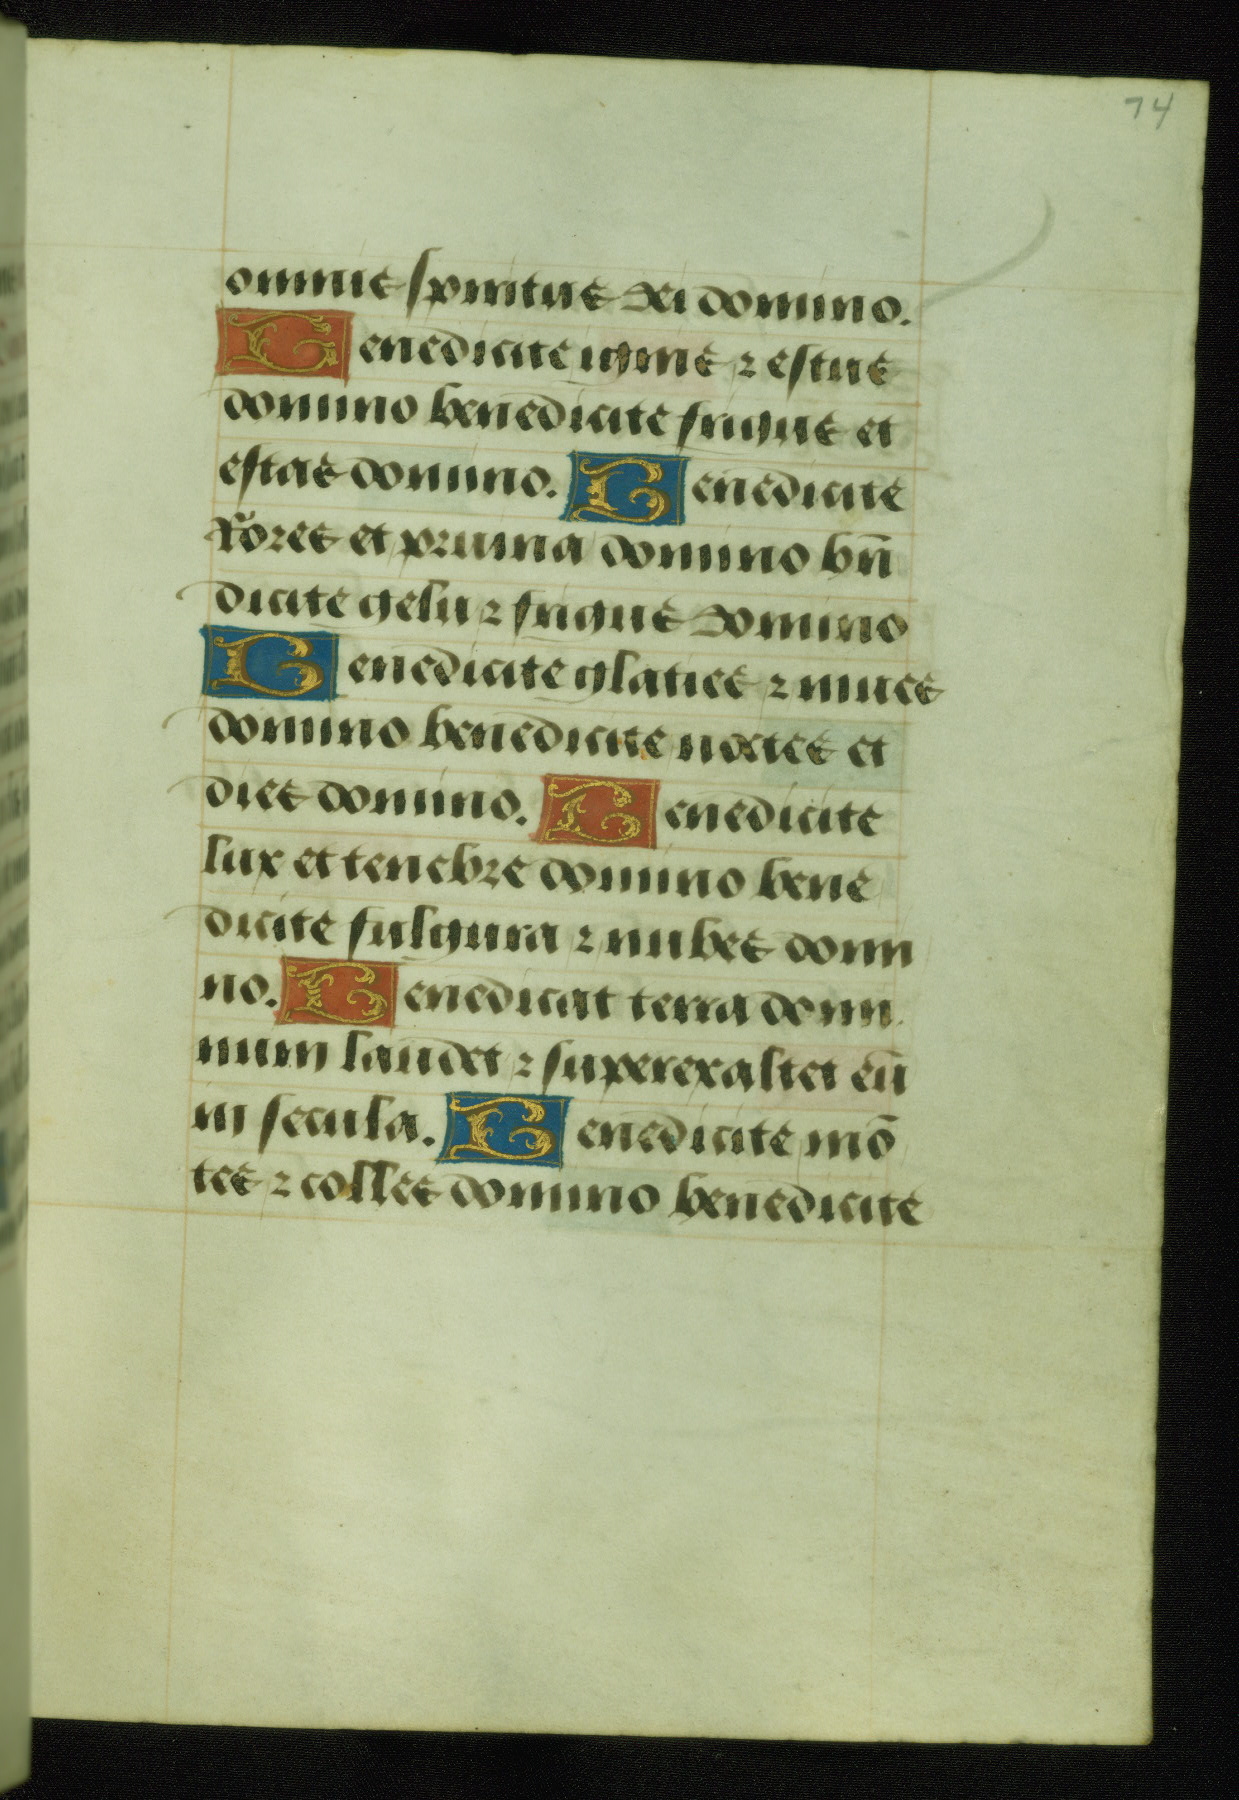 74
omnis spiritus dei domino.
Benedicite ignis ⁊ estus
domino benedicite frigus et
estas domino. Benedicite
Rores et pruina domino bn̄
dicite gelu ⁊ frigus domino
Benedicite glaties ⁊ niues
domino benedicite noctes et
dies domino. Benedicite
lux et tenebre domino bene
dicite fulgura ⁊ nubes domi
no. Benedicat terra domi
num laudet ⁊ superexaltet eū
in secula. Benedicite mō
tes ⁊ colles domino benedicite